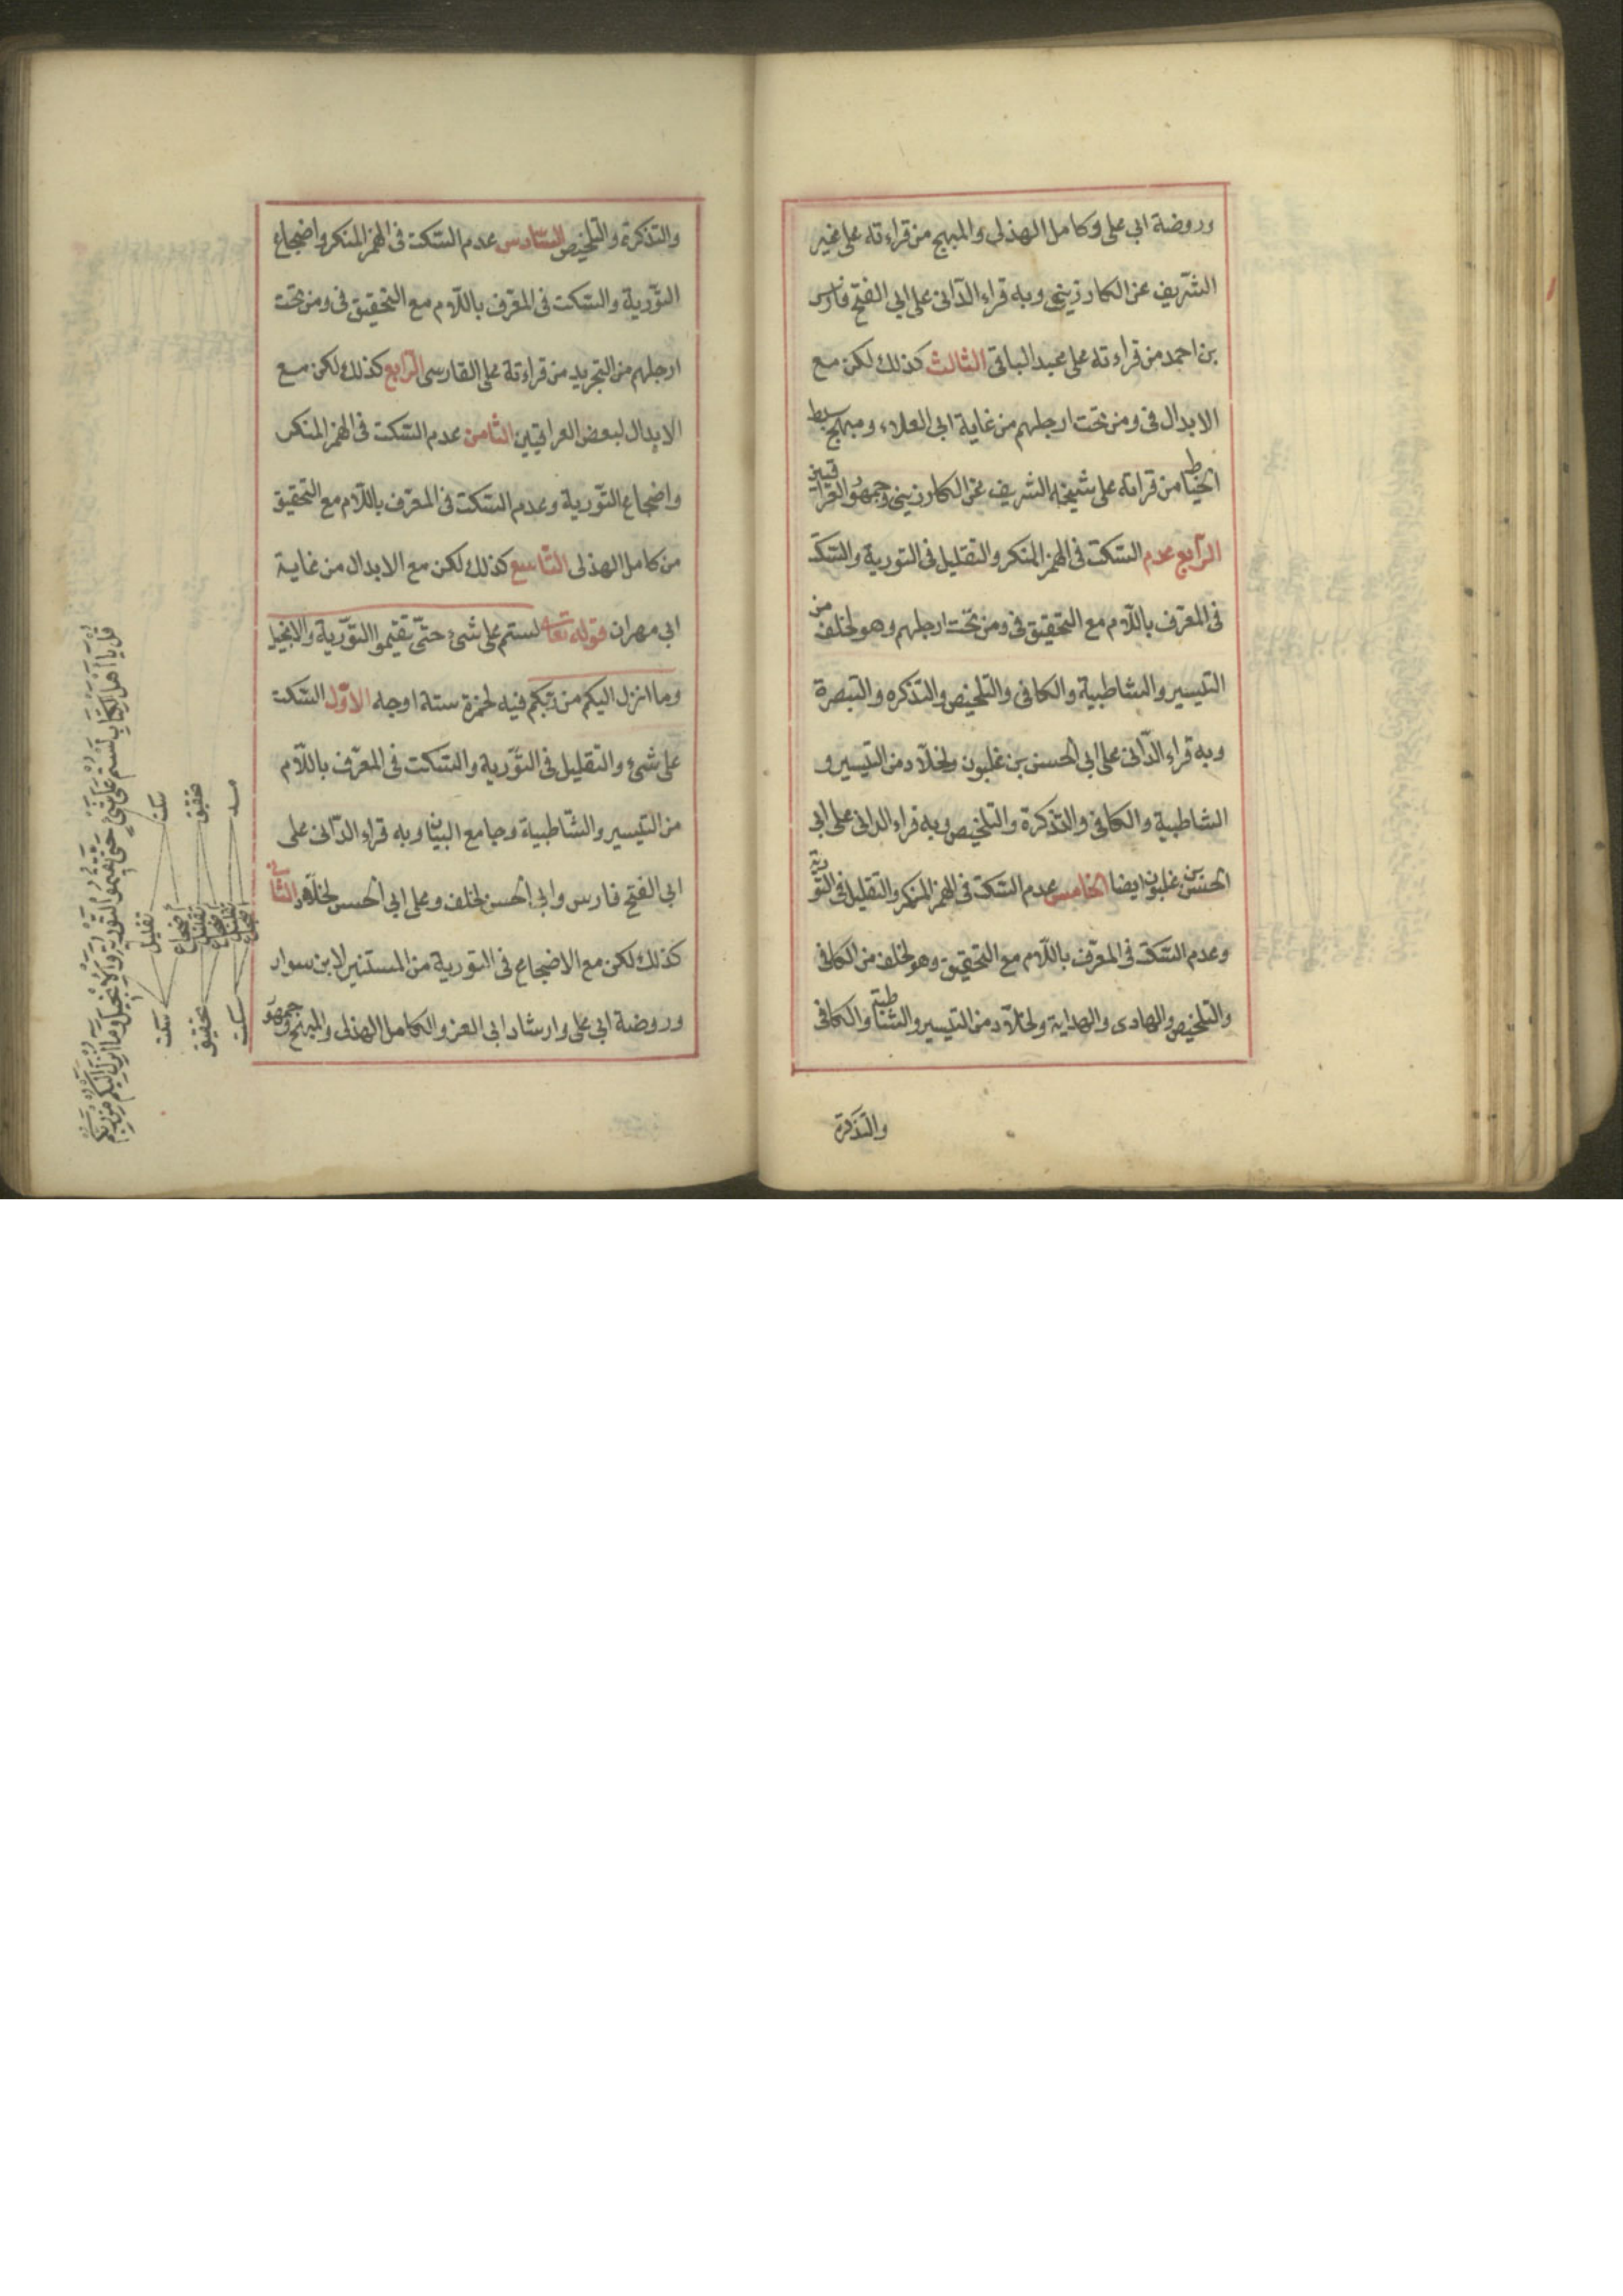 وروضة ابى على وكامل الهذلى والمبهج من قراءته على غير
الشريف عن الكارزينى وبه قراء الدّانى على ابى الفتح فارس
بن احمد من قراءته على عبد الباقى الثالث كذلك لكن مع
الابدال فى ومن تحت ارجلهم من غاية ابى العلاء ومبهج سبط
الخياط من قراءته على شيخه الشريف عن الكارزينى وجمهور العراقيين
الرّابع عدم السّكت فى الهمز المنكر والتقليل فى التورية والسّكت
فى المعّرف باللّام مع التحقيق فى ومن تحت ارجلهم وهو لخلف من
التيسير والشاطبية والكافى والتلخيص والتذكره والتبصرة
وبه قراء الدّانى على ابى الحسن بن غلبون ولخلّاد من التيسير و
الشاطبية والكافى والتذكرة والتلخيص وبه قراء الدانى على ابى
الحسن بن غلبون ايضا الخامس عدم السّكت فى الهمز المنكر والتقليل فى التورية
وعدم السّكت فى المعّرف باللّام مع التحقيق وهو لخلف من الكافى
والتلخيص والهادى والهداية ولخلّاد من التيسير والشاطبية والكافى
والتذكرة
والتذكرة والتلخيص السّادس عدم السّكت فى الهمز المنكر واضجاع
التّورية والسّكت فى المعّرف باللّام مع التحقيق فى ومن تحت
ارجلهم من التجريد من قراءتة على الفارسى الرّابع كذلك لكن مع
الابدال لبعض العراقيّين الثامن عدم السّكت فى الهمز المنكر
واضجاع التّورية وعدم السّكت فى المعّرف باللّام مع التحقيق
من كامل الهذلى التّاسع كذلك لكن مع الابدال من غاية
ابى مهران قوله تعا لستم على شىء حتّى تقيموا التوّرية والانجيل
وما انزل اليكم من ربّكم فيه لحمزة ستة اوجه الاوّل السّكت
على شىء والتقليل فى التّورية والسّكت فى المعّرف باللّام
من التيسير والشّاطبية وجامع البيان وبه قراء الدّانى على
ابى الفتح فارس وابى الحسن لخلف وعلى ابى الحسن لخلّاد الثّانى
كذلك لكن مع الاضجاع فى التورية من المستنير لابن سوار
وروضة ابى على وارشاد ابى العز والكامل الهذلى والمبهج وجمهور
قل يا اهل الكتاب لستم على شئ حتى تقيموا التورية والانجيل وما انزل اليكم من ربكم
سكت تحقيق مد
تقليل اضجاع تقليل اضجاع تقليل اضجاع
سكت تحقيق سكت